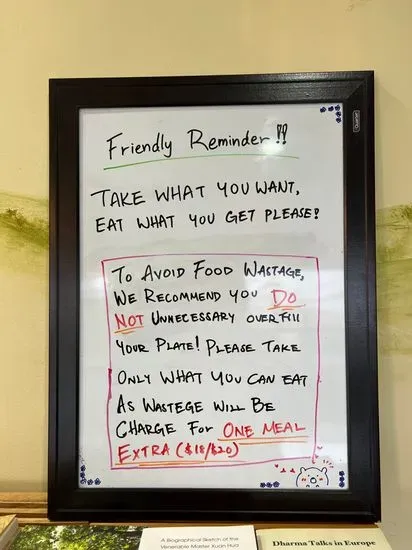 Quartet
Friendly Reminder!!
TAKE WHAT YOU WANT,
EAT WHAT YOU GET PLEASE!
TO AVOID FOOD WASTAGE,
WE RECOMMEND YOU DO
NOT UNNECESSARY OVERFILL
YOUR PLATE! PLEASE TAKE
ONLY WHAT YOU CAN EAT
AS WASTEGE WILL BE
CHARGE FOR ONE MEAL
EXTRA ($18/$20)
A Biographical Sketch of the
Venerable Master Xuan Hua
Dharma Talks in Europe